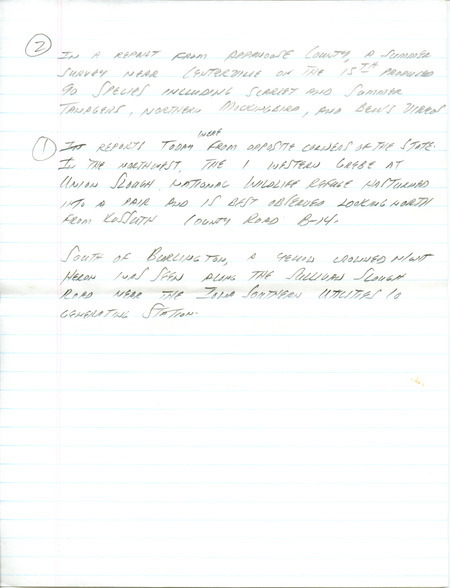 2 In a report from Appanoose County, a summer
survey near Centerville on the 15th produced
90 species including Scarlet and Summer
Tanagers, Northern Mockingbird, and Bell's Vireo
were
1 reports today from opposite corners of the state.
In the northwest, the 1 Western Grebe at
Union Slough National Wildlife Refuge has turned
into a pair and is best observed looking north
from Kossuth County Road B-14.
South of Burlington, a Yellow crowned Night
Heron was seen along the Sullivan Slough
Road near the Iowa Southern Utilities Co
generating station.